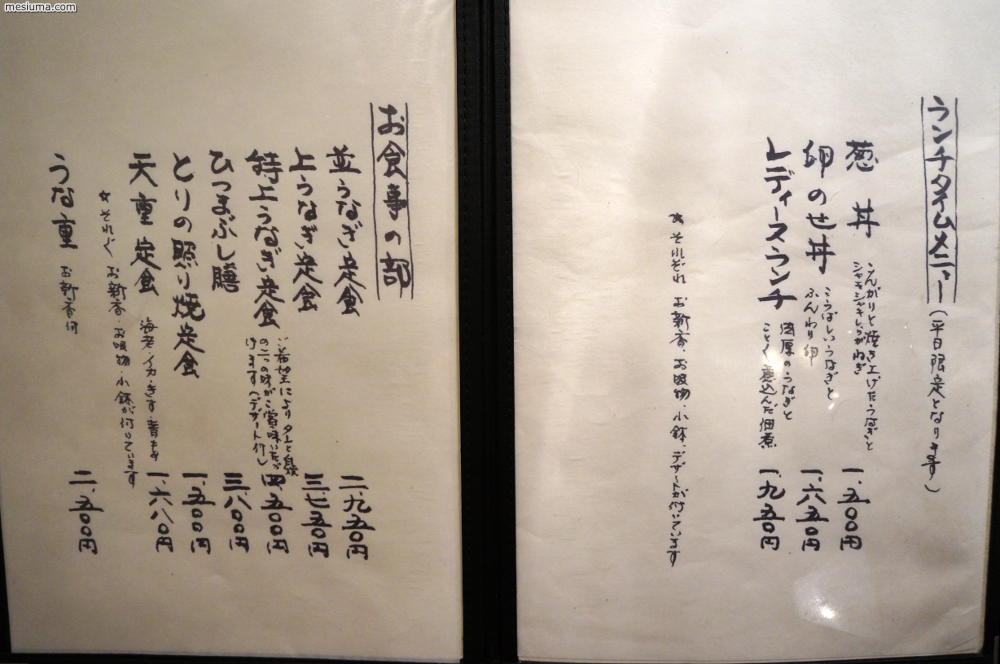 mesiuma.com
ランチタイムメニュー(平日限定となります)
葱丼 こんがりと焼き上げたうなぎと
シャキシャキしらがねぎ 一、五〇〇円
卵のせ丼 こうばしいうなぎと
ふんわり卵 一、六五〇円
レディースランチ 肉厚のうなぎと
ことこと煮込んだ佃煮 一、九五〇円
☆それぞれ お新香、お吸物、小鉢、デザートが付いています
お食事の部
並うなぎ定食 二、九五〇円
上うなぎ定食 三、七五〇円
特上うなぎ定食 ご希望によりタレと白焼
の二つの味がご賞味いただ
けます(デザート付) 四、五〇〇円
ひつまぶし膳 三、八〇〇円
とりの照り焼定食 一、五〇〇円
天重定食 海老・イカ・きす・ 一、六八〇円
☆それぞれ お新香・お吸物・小鉢が付いています
うな重 お新香付 二、五〇〇円